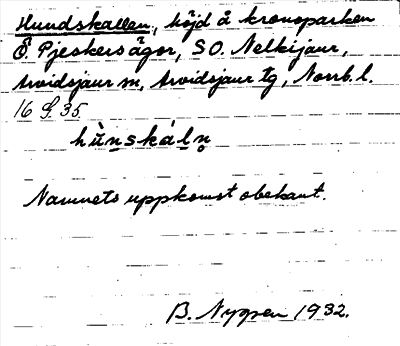 Hundskallen, höjd å kronoparken
Ö. Pjeskers ägor, S O. Nelkijaur,
Arvidsjaur sn, Arvidsjaur tg, Norrb. l.
16 S. 35.
hùnskáln̥
Namnets uppkomst obekant.
B. Nygren 1932.